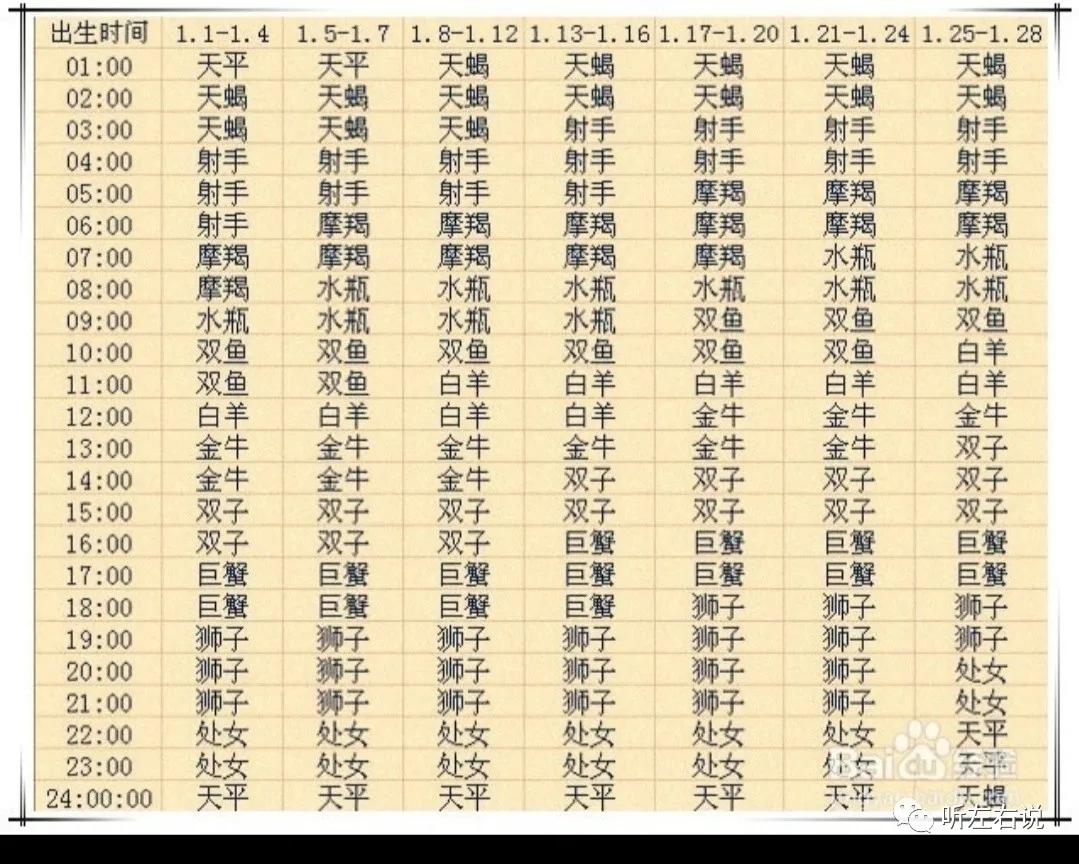 出生时间 1.1-1.4 1.5-1.7 1.8-1.12 1.13-1.16 1.17-1.20 1.21-1.24 1.25-1.28
01:00 天平 天平 天蝎 天蝎 天蝎 天蝎 天蝎
02:00 天蝎 天蝎 天蝎 天蝎 天蝎 天蝎 天蝎
03:00 天蝎 天蝎 天蝎 射手 射手 射手 射手
04:00 射手 射手 射手 射手 射手 射手 射手
05:00 射手 射手 射手 射手 摩羯 摩羯 摩羯
06:00 射手 摩羯 摩羯 摩羯 摩羯 摩羯 摩羯
07:00 摩羯 摩羯 摩羯 摩羯 摩羯 水瓶 水瓶
08:00 摩羯 水瓶 水瓶 水瓶 水瓶 水瓶 水瓶
09:00 水瓶 水瓶 水瓶 水瓶 双鱼 双鱼 双鱼
10:00 双鱼 双鱼 双鱼 双鱼 双鱼 双鱼 白羊
11:00 双鱼 双鱼 白羊 白羊 白羊 白羊 白羊
12:00 白羊 白羊 白羊 白羊 金牛 金牛 金牛
13:00 金牛 金牛 金牛 金牛 金牛 金牛 双子
14:00 金牛 金牛 金牛 双子 双子 双子 双子
15:00 双子 双子 双子 双子 双子 双子 双子
16:00 双子 双子 双子 巨蟹 巨蟹 巨蟹 巨蟹
17:00 巨蟹 巨蟹 巨蟹 巨蟹 巨蟹 巨蟹 巨蟹
18:00 巨蟹 巨蟹 巨蟹 巨蟹 狮子 狮子 狮子
19:00 狮子 狮子 狮子 狮子 狮子 狮子 狮子
20:00 狮子 狮子 狮子 狮子 狮子 狮子 处女
21:00 狮子 狮子 狮子 狮子 狮子 狮子 处女
22:00 处女 处女 处女 处女 处女 处女 天平
23:00 处女 处女 处女 处女 处女 处女 天平
24:00:00 天平 天平 天平 天平 天平 天平 天蝎
Baidu 经验
听左右说